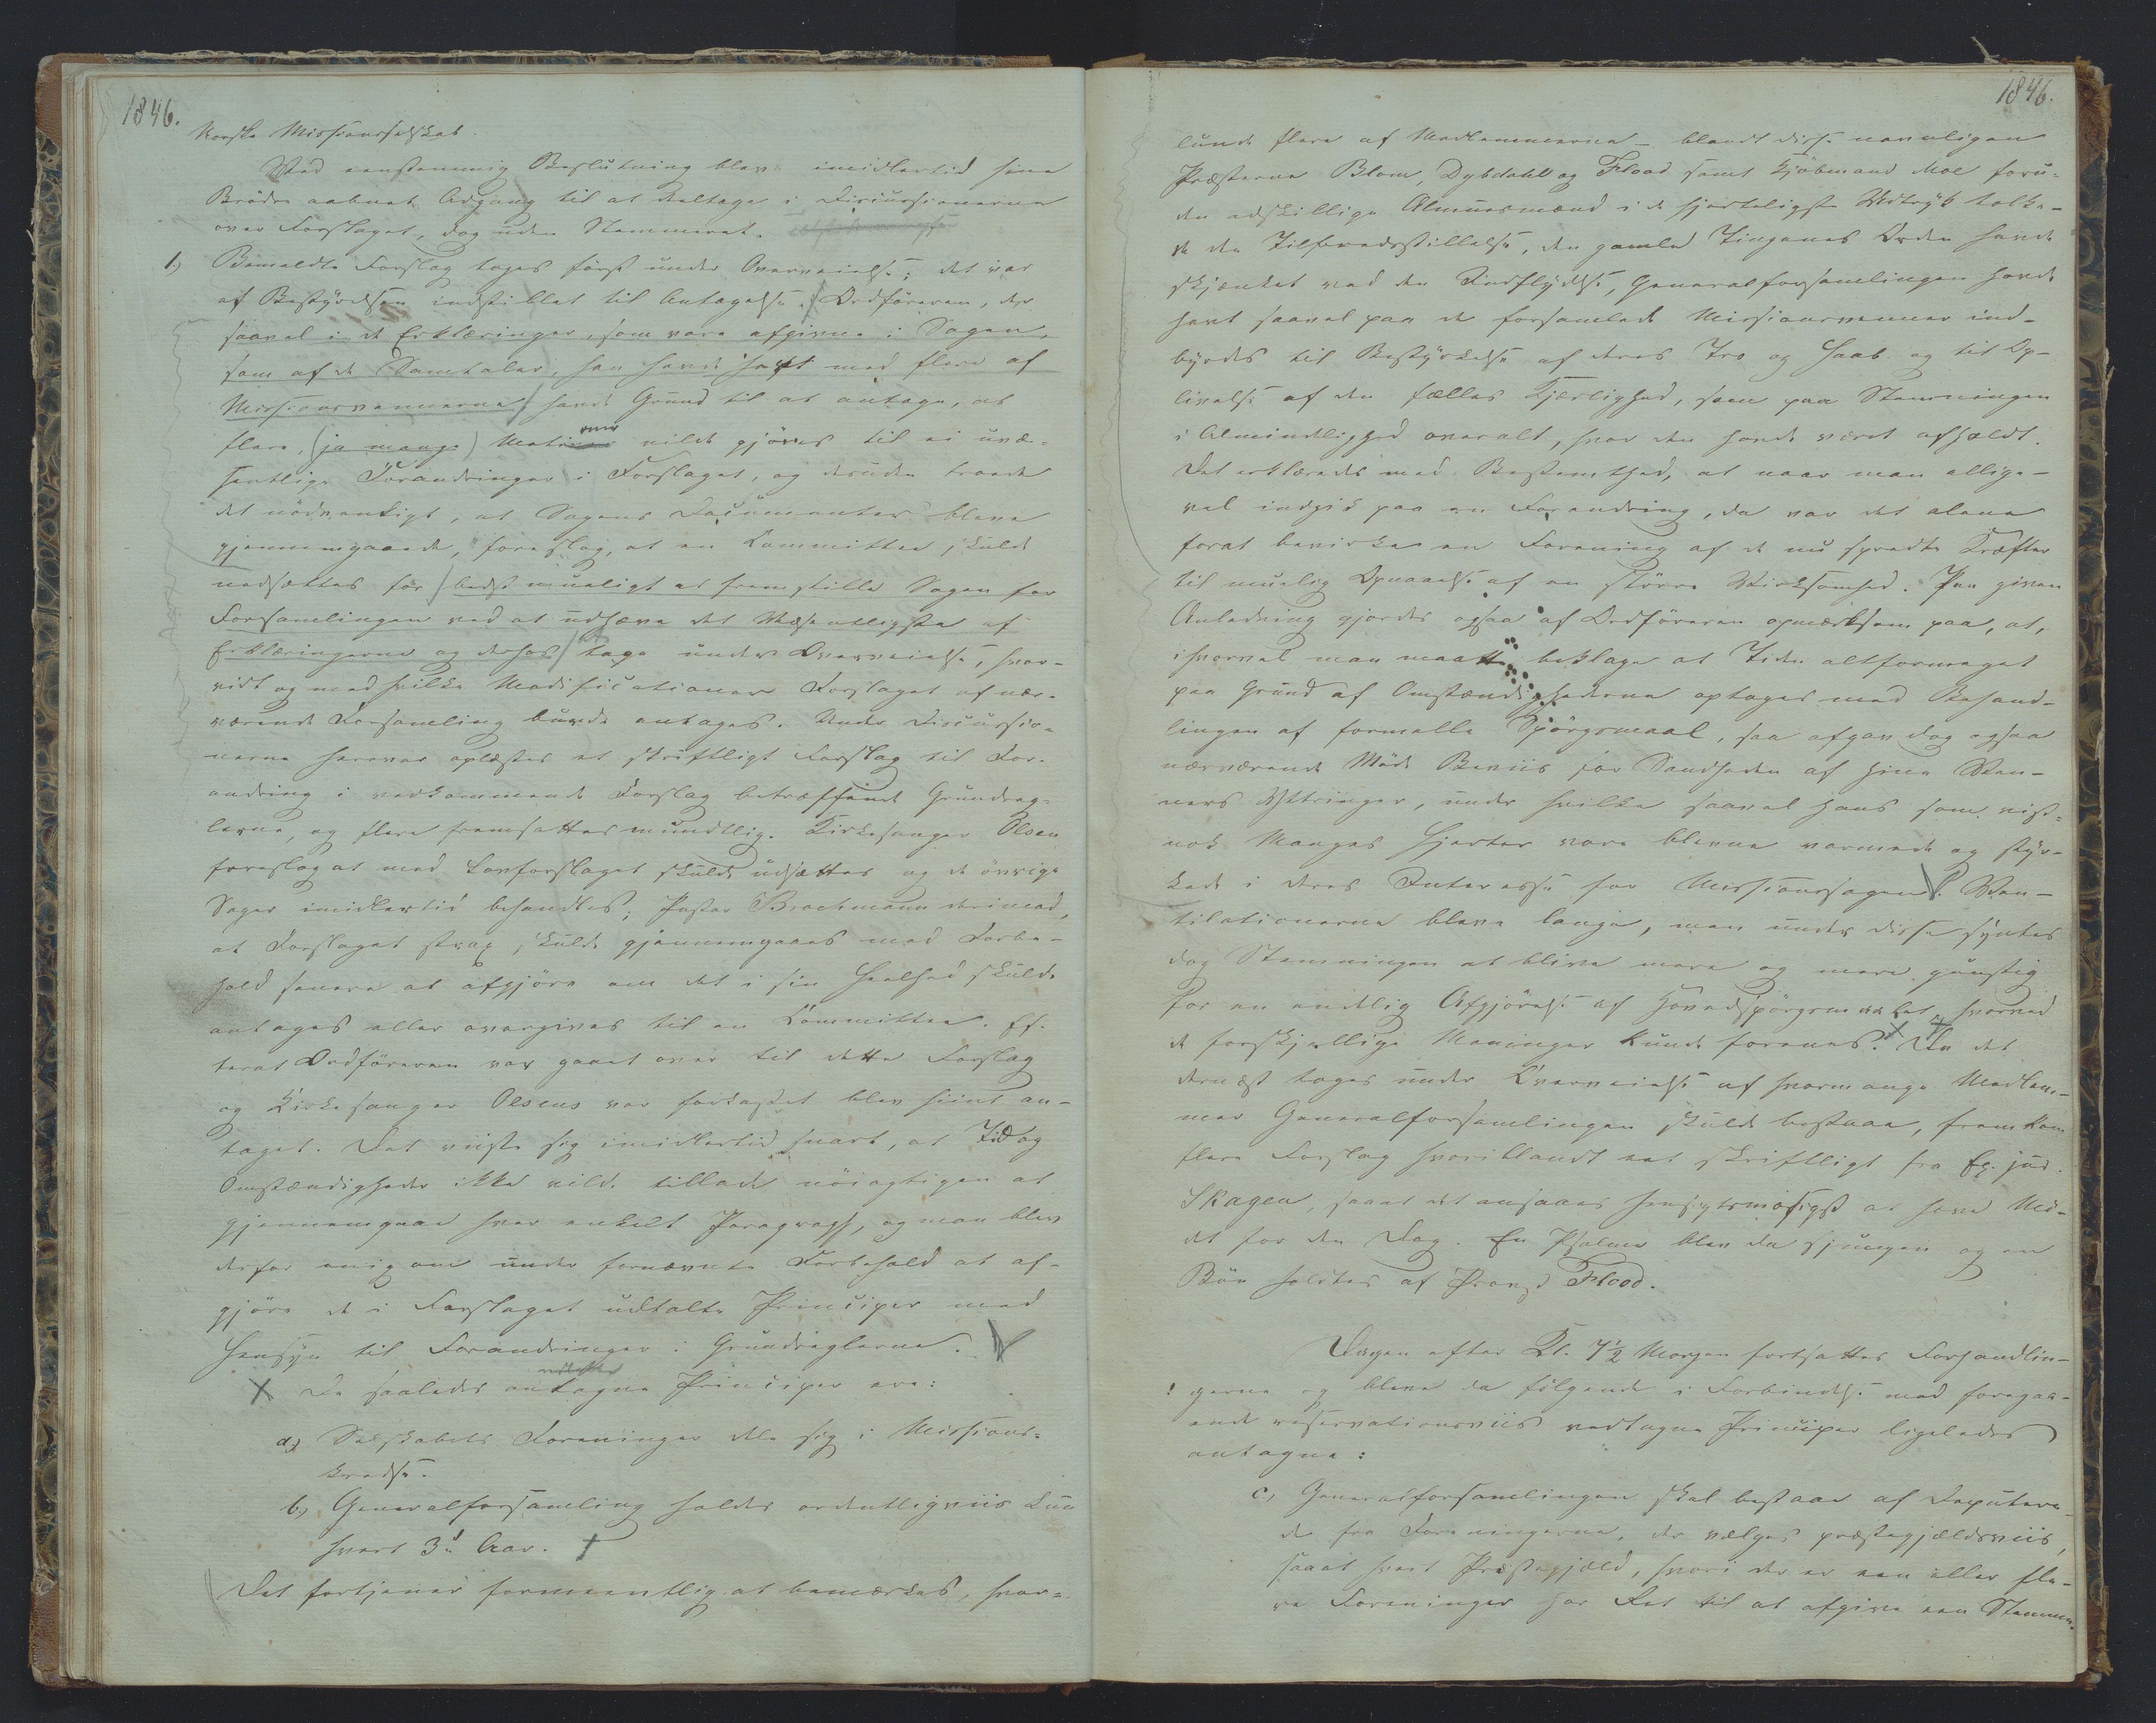 1846.
Norske Missionsselskab.
Ved eenstemmig Beslutning blev imidlertid hine
Brödre aabnet Adgang til at deltage i Discussionerne
over Forslaget, dog uden Stemmeret.
1) Bemeldte Forslag toges först under Overveielse; det var
af Bestyrelsen indstillet til Antagelse. Ordföreren, der
saavel i de Erklæringer, som vare afgivne i Sagen,
som af de Samtaler, han havde havt med flere af
Missionsvennerne, havde Grund til at antage, at
flere, (ja mange) vilde gjöres til ei uvæ-
sentlige Forandringer i Forslaget, og desuden troede
det nödvendigt, at Sagens Documenter bleve
gjennemgaaede, foreslog, at en Committee skulde
nedsættes for bedst mueligt at fremstille Sagen for
Forsamlingen ved at udhæve det Væsentligste af
Erklæringerne og derhos tage under Overveielse, hvor-
vidt og med hvilke Modificationer Forslaget af nær-
værende Forsamling burde antages. Under Discussio-
nerne herover oplæstes et skriftligt Forslag til For-
andring i vedkommende Forslag betræffende Grundreg-
lerne, og flere fremsattes mundtlig. Kirkesanger Olsen
foreslog at med Lovforslaget skulde udsættes og de övrige
Sager imidlertid behandles; Pastor Brochmann derimod,
at Forslaget strax skulde gjennemgaaes med Forbe-
hold senere at afgjöre om det i sin Heelhed skulde
antages eller overgives til en Committee. Ef-
terat Ordföreren var gaaet over til dette Forslag
og Kirkesanger Olsens var forkastet blev hiint an-
taget. Det viiste sig imidlertid snart, at Tid og
Omstændigheder ikke vilde tillade nöiagtigen at
gjennemgaae hver enkelt Paragraph, og man blev
derfor enig om under fornævnte Forbehold at af-
gjöre de i Forslaget udtalte Principer med
Hensyn til Forandringer i Grundreglerne.
De saaledes antagne Principer ere:
a) Selskabets Foreninger dele sig i Missions-
kredse.
b) Generalforsamling holdes ordentligviis kun
hvert 3die Aar.
Det fortjener formeentlig at bemærkes, hvor-
1846.
lunde flere af Medlemmerne – blandt disse navnligen
Præsterne Blom, Dybdahl og Flood samt Kjöbmand Moe foru-
den adskillige Almuesmænd i de hjerteligste Udtryk tolke-
de den Tilfredsstillelse, den gamle Tingenes Orden havde
skjænket ved den Indflydelse, Generalforsamlingen havde
havt saavel paa de forsamlede Missionsvenner ind-
byrdes til Bestyrkelse af deres Tro og Haab og til Op-
livelse af den fælles Kjerlighed, som paa Stemningen
i Almindelighed overalt, hvor den havde været afholdt.
Det erklæredes med Bestemthed, at naar man allige-
vel indgik paa en Forandring, da var det alene
forat bevirke en Forening af de nu spredte Kræfter
til muelig Opnaaelse af en större Virksomhed. Paa given
Anledning gjordes ogsaa af Ordföreren opmærksom paa, at,
ihvorvel man maatte beklage at Tiden altformeget
paa Grund af Omstændighederne optoges med Behand-
lingen af formelle Spörgsmaal, saa afgav dog ogsaa
nærværende Möde Beviis for Sandheden af hine Ven-
ners Yttringer, under hvilke saavel hans som vist-
nok Manges Hjerter vare blevne varmede og styr-
kede i deres Interesse for Missionssagen. Ven-
tilationerne bleve lange, men under disse syntes
dog Stemningen at blive mere og mere gunstig
for en endelig Afgjörelse af Hovedspörgsmaalet, hvorved
de forskjellige Meninger kunde forenes. Da det
dernæst toges under Overveielse af hvormange Medlem-
mer Generalforsamlingen skulde bestaae, fremkom
flere Forslag hvoriblandt eet skriftligt fra Ex. jud.
Skagen, saaat det ansaaes hensigtsmæssigst at hæve Mö-
det for den Dag. En Psalme blev da sjungen og en
Bön holdtes af Provst Flood.
Dagen efter Kl. 7½ Morgen fortsattes Forhandlin-
gerne og bleve da fölgende i Forbindelse med foregaa-
ende reservationsviis vedtagne Principer ligeledes
antagne:
c) Generalforsamlingen skal bestaae af Deputere-
de fra Foreningerne, der vælges præstegjældsviis,
saaat hvert Præstegjæld, hvori der er een eller fle-
re Foreninger har Ret til at afgive een Stemme.